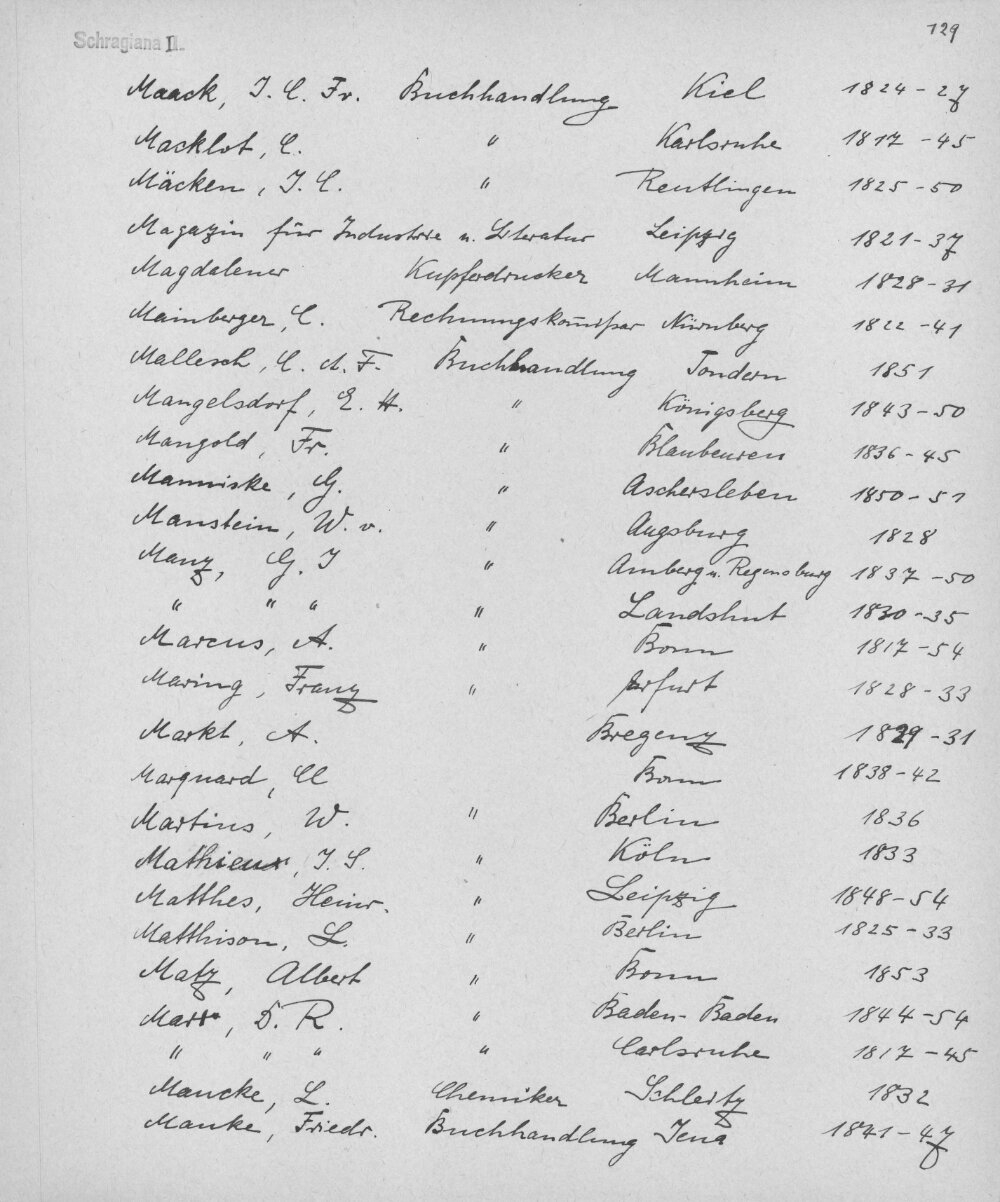 Schragiana II.
129
Maack, J. C. Fr. Buchhandlung Kiel 1824-27
Macklot, C. " Karlsruhe 1817-45
Mäcken, J. C. " Reutlingen 1825-50
Magazin für Industrie u. Literatur Leipzig 1821-37
Magdalener Kupferdrucker Mannheim 1828-31
Mainberger, C. Rechnungskom̅issar Nürnberg 1822-41
Mallesch, C. A. F. Buchhandlung Tondern 1851
Mangelsdorf, E. H. " Königsberg 1843-50
Mangold, Fr. " Blaubeuren 1836-45
Manniske, G. " Aschersleben 1850-51
Manstein, W. v. " Augsburg 1828
Manz, G. J " Amberg u. Regensburg 1837-50
" " " " Landshut 1830-35
Marcus, A. " Bonn 1817-54
Maring, Franz " Erfurt 1828-33
Markt, A. Bregenz 1829-31
Marquard, Cl Bonn 1838-42
Martius, W. " Berlin 1836
Mathieux, J. S. " Köln 1833
Matthes, Heinr. " Leipzig 1848-54
Matthison, L. " Berlin 1825-33
Matz, Albert " Bonn 1853
Marx, D. R. " Baden-Baden 1844-54
" " " " Carlsruhe 1817-45
Maucke, L. Chemiker Schleitz 1832
Mauke, Friedr. Buchhandlung Jena 1841-47